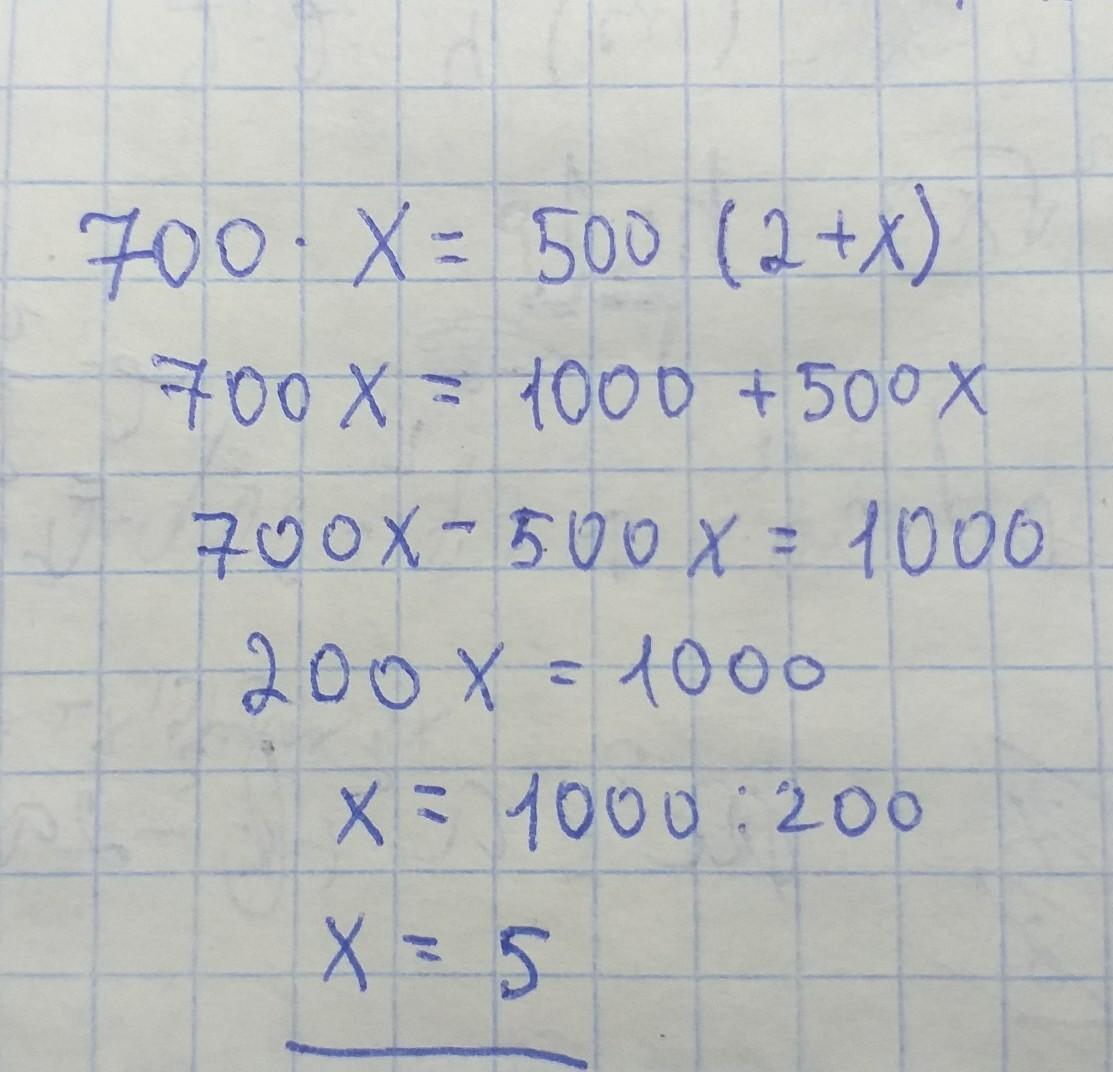 700 · x = 500 (2+x)
700 x = 1000 + 500 x
700x - 500 x = 1000
200 x = 1000
x = 1000 : 200
x = 5